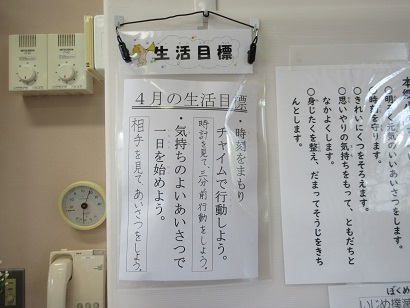 生活目標
4月の生活目標
・時刻をまもり
チャイムで行動しよう。
時計を見て、三分前行動をしよう。
・気持ちのよいあいさつで
一日を始めよう。
相手を見て、あいさつをしよう。
○明るく元気のいいあいさつをします。
○時刻を守ります。
○きれいにくつをそろえます。
○思いやりの気持ちをもって、ともだちと
なかよくします。
○身じたくを整え、だまってそうじをきち
んとします。